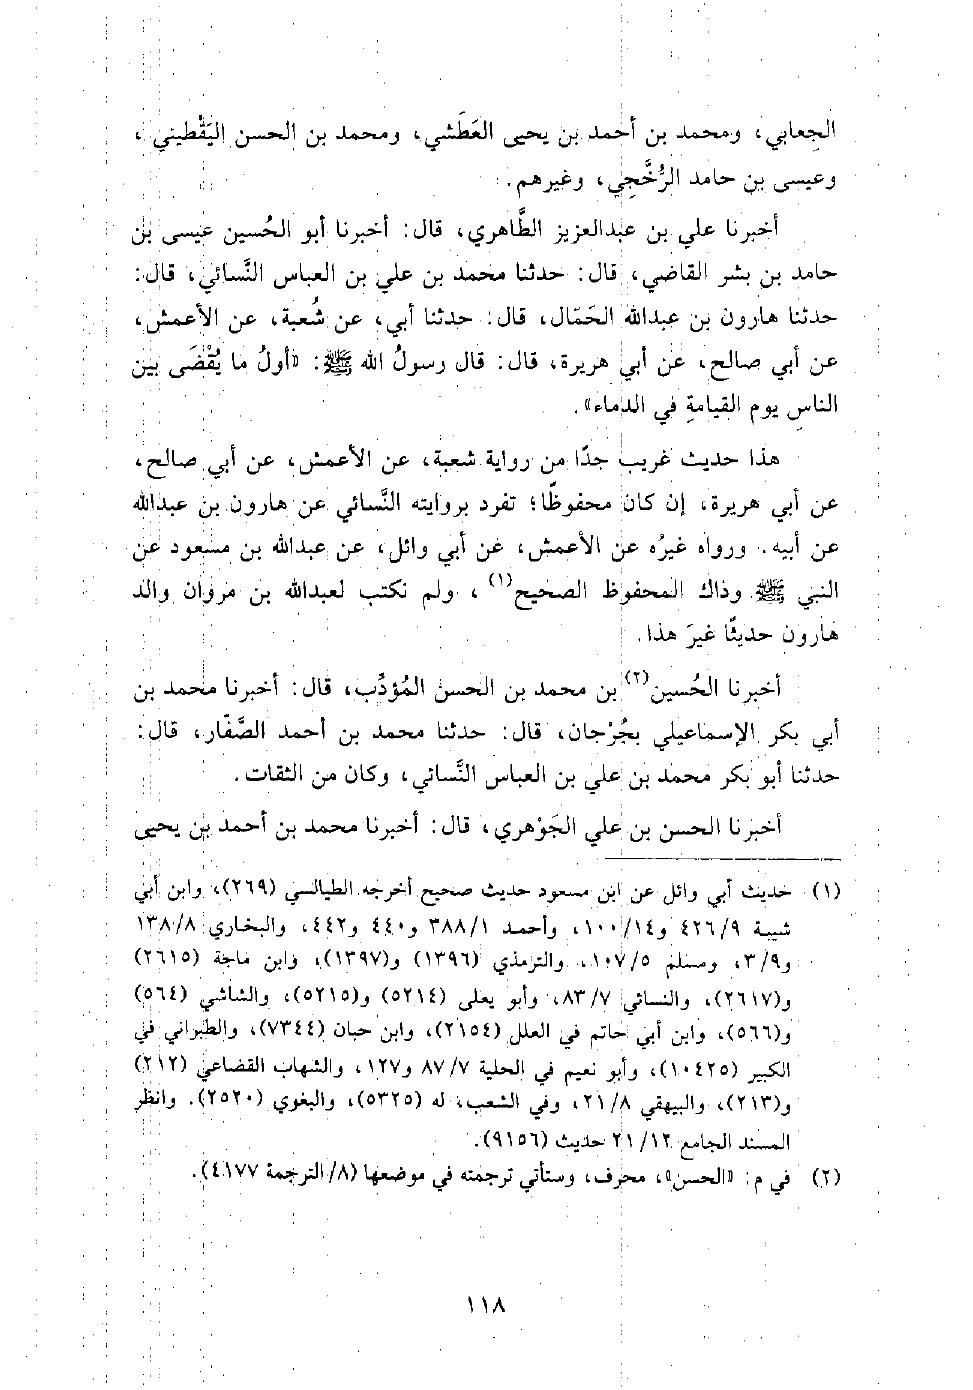 الجِعابي، ومحمد بن أحمد بن يحيى العَطَشي، ومحمد بن الحسن اليَقْطيني،
وعيسى بن حامد الرُّخَّجِي، وغيرهم.
أخبرنا علي بن عبدالعزيز الطَّاهري، قال: أخبرنا أبو الحُسين عيسى بن
حامد بن بشر القاضي، قال: حدثنا محمد بن علي بن العباس النَّسائي، قال:
حدثنا هارون بن عبدالله الحَمّال، قال: حدثنا أبي، عن شُعبة، عن الأعمش،
عن أبي صالح، عن أبي هريرة، قال: قال رسولُ الله ﷺ: «أولُ ما يُقْضَى بين
الناسِ يوم القيامةِ في الدماء».
هذا حديث غريب جدًا من رواية شعبة، عن الأعمش، عن أبي صالح،
عن أبي هريرة، إن كان محفوظًا؛ تفرد بروايته النَّسائي عن هارون بن عبدالله
عن أبيه. ورواه غيرُه عن الأعمش، عن أبي وائل، عن عبدالله بن مسعود عن
النبي ﷺ وذاك المحفوظ الصحيح(١)، ولم نكتب لعبدالله بن مروان والد
هارون حديثًا غيرَ هذا.
أخبرنا الحُسين(٢) بن محمد بن الحسن المُؤدِّب، قال: أخبرنا محمد بن
أبي بكر الإسماعيلي بجُرْجان، قال: حدثنا محمد بن أحمد الصَّفّار، قال:
حدثنا أبو بكر محمد بن علي بن العباس النَّسائي، وكان من الثقات.
أخبرنا الحسن بن علي الجَوْهري، قال: أخبرنا محمد بن أحمد بن يحيى
(١) حديث أبي وائل عن ابن مسعود حديث صحيح أخرجه الطيالسي (٢٦٩)، وابن أبي
شيبة ٤٢٦/٩ و١٠٠/١٤، وأحمد ٣٨٨/١ و٤٤٠ و٤٤٢، والبخاري ١٣٨/٨
و٣/٩، ومسلم ١٠٧/٥، والترمذي (١٣٩٦) و(١٣٩٧)، وابن ماجة (٢٦١٥)
و(٢٦١٧)، والنسائي ٨٣/٧، وأبو يعلى (٥٢١٤) و(٥٢١٥)، والشاشي (٥٦٤)
و(٥٦٦)، وابن أبي حاتم في العلل (٢١٥٤)، وابن حبان (٧٣٤٤)، والطبراني في
الكبير (١٠٤٢٥)، وأبو نعيم في الحلية ٨٧/٧ و١٢٧، والشهاب القضاعي (٢١٢)
و(٢١٣)، والبيهقي ٢١/٨، وفي الشعب، له (٥٣٢٥)، والبغوي (٢٥٢٠). وانظر
المسند الجامع ٢١/١٢ حديث (٩١٥٦).
(٢) في م: «الحسن»، محرف، وستأتي ترجمته في موضعها (٨/الترجمة ٤١٧٧).
١١٨